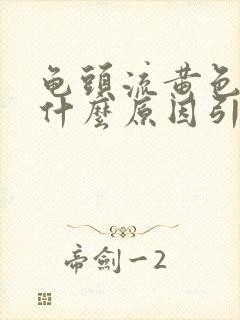 龟頭流黄色
什麼原因引
帝劍一2